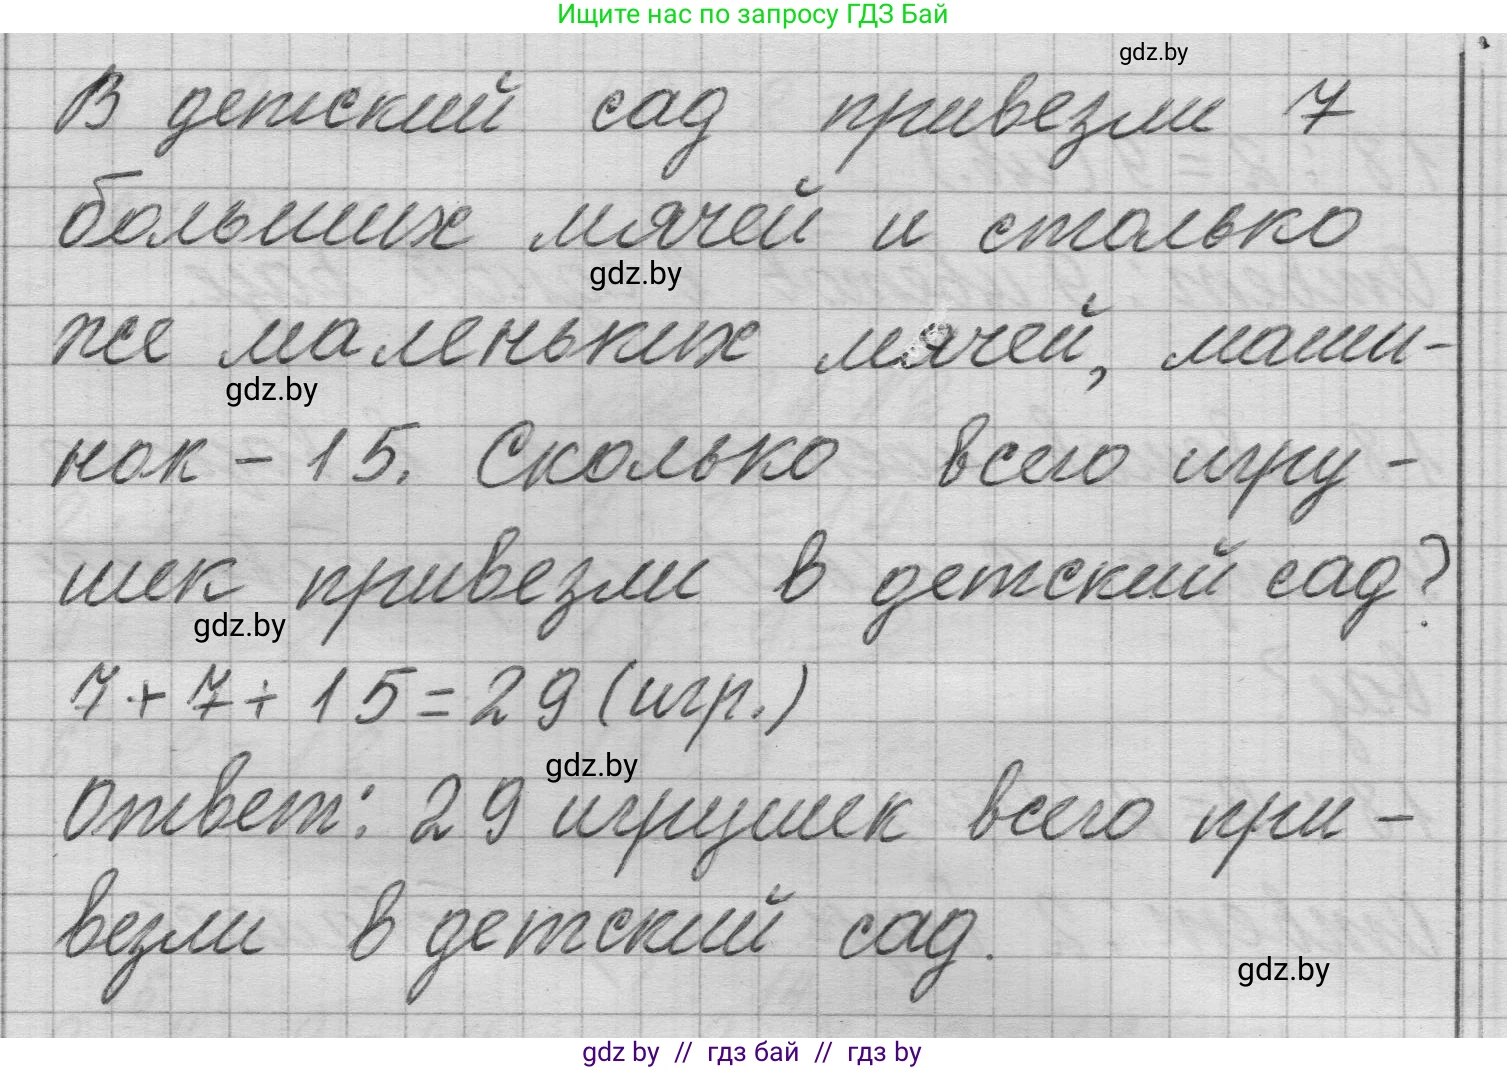 Ищите нас по запросу ГДЗ Бай
gdz.by
В детский сад привезли 7
больших мячей и столько
gdz.by
же маленьких мячей, маши-
gdz.by
нок - 15. Сколько всего игру-
шек привезли в детский сад?
gdz.by
7+7+15=29 (игр.)
gdz.by
Ответ: 29 игрушек всего при-
везли в детский сад.
gdz.by
gdz by // гдз бай // гдз by